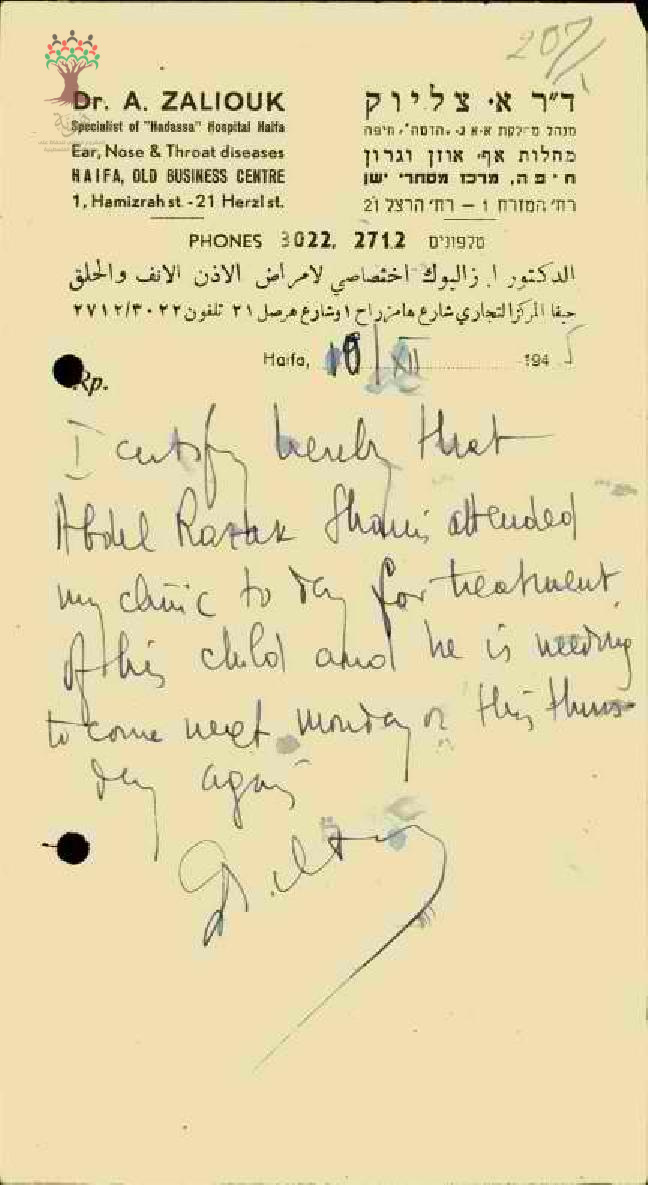 207
Dr. A. ZALIOUK
Specialist of "Hadassa" Hospital Haifa
Ear, Nose & Throat diseases
HAIFA, OLD BUSINESS CENTRE
1, Hamizrah st. - 21 Herzl st.
ד״ר א. צליוק
מנהל מחלקת א.א.ג. ״הדסה״, חיפה
מחלות אף, אוזן וגרון
חיפה, מרכז מסחרי ישן
רח׳ המזרח 1 — רח׳ הרצל 21
PHONES 3022, 2712 טלפונים
الدكتور ا. زاليوك اختصاصي لامراض الاذن الانف والحلق
حيفا المركز التجاري شارع هامزراح ١ وشارع هرصل ٢١ تلفون ٢٧١٢/٣٠٢٢
Haifa, 10/XII 1945
Rp.
I certify hereby that
Abdel Razak Shami attended
my clinic to day for treatment
of his child and he is needing
to come next monday or this thurs-
day again